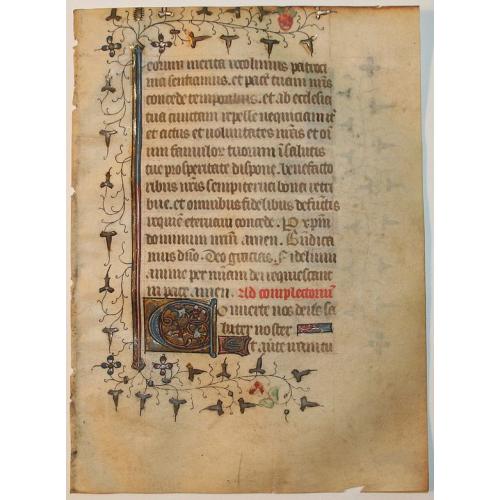 eorum merita recolimus patroci
nia sentiamus. et pacē tuam nr̄is
concede temporibus. et ab ecclesia
tua cunctam repelle nequiciam it̄
et actus et voluntates nr̄as et oı̄
um famulor tuorum ī salutis
tue prosperitate dispone. benefacto
ribus nr̄is sempiterna bona retri
bue. et omnibus fidelibus defūctis
requiē eternam concede. P xp̄m
dominum nr̄m amen. Bn̄dica
mus dn̄o. Deo gracias. Fidelium
anime per mīam dei requiescant
in pace amen. Ad completoriū
Converte nos deus sa
lutaris noster
Et averte iram tu